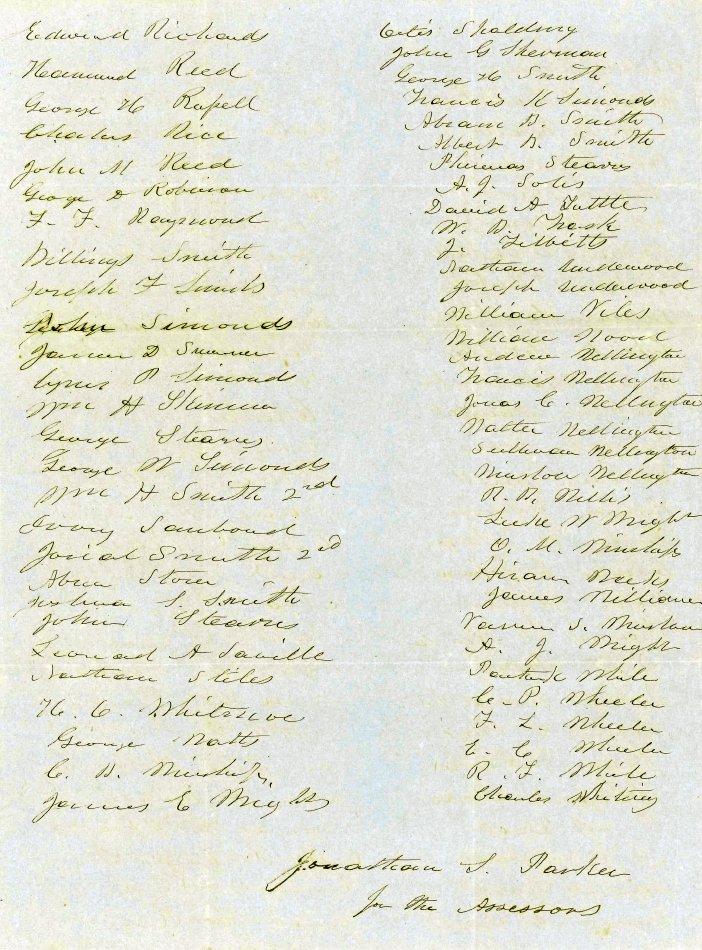 Edward Richards
Hammond Reed
George H Russell
Charles Rice
John M Reed
George D Robinson
F. F. Raymond
Billings Smith
Joseph F Simonds
Simonds
James D Sumner
Cyrus P Simonds
Wm H Skinner
George Stearns
George W Simonds
Wm H Smith 2nd
Ivory Sanborn
Josiah Smith 2nd
Abner Stone
Joshua S. Smith
John Stearns
Leonard A Saville
Nathan Stiles
H. C. Whitmore
George Watts
C. B. Winship
James E Wright
Otis Spalding
John G Sherman
George H Smith
Francis K Simonds
Abram B. Smith
Albert B. Smith
Phineas Stearns
A. J. Solis
David A Tuttle
W. B. Trask
J. Tibbetts
Nathan Underwood
Joseph Underwood
William Viles
William Wood
Andrew Wellington
Francis Wellington
Jonas C. Wellington
Walter Wellington
Sullivan Wellington
Winslow Wellington
R. B. Willis
Luke W Wright
O. M. Winship
Hiram
James Williams
Warren S.
A. J. Wright
Patrick White
C. P. Wheeler
F. L. Wheeler
E. C. Wheeler
R. F. White
Charles Whiting
Jonathan S. Parker
for the Assessors